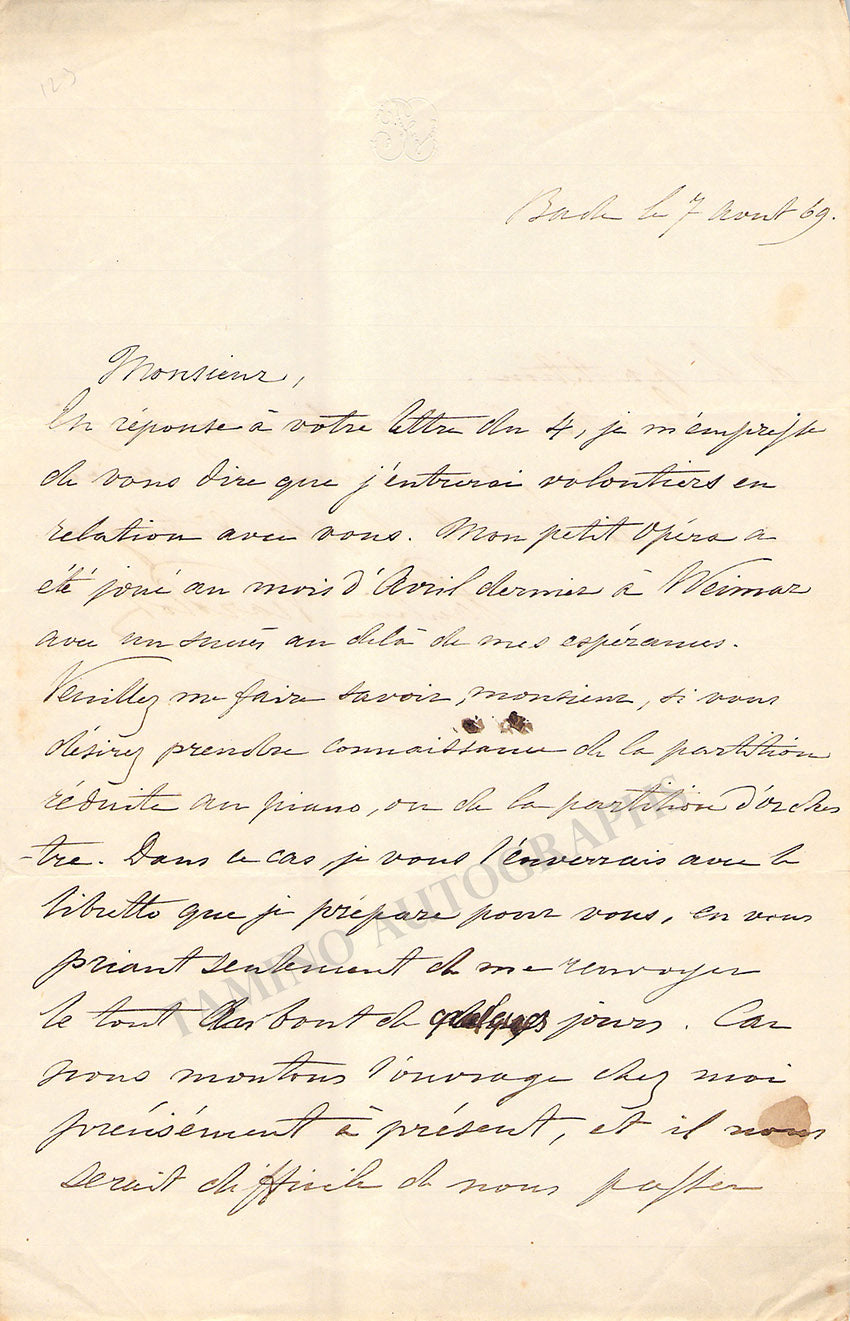 123
Bade le 7 aout 69.
Monsieur,
En réponse à votre lettre du 4, je m'empresse
de vous dire que j'entrerai volontiers en
relation avec vous. Mon petit Opéra a
été joué au mois d'Avril dernier à Weimar
avec un succès au delà de mes espérances.
Veuillez me faire savoir, monsieur, si vous
désirez prendre connaissance de la partition
réduite au piano, ou de la partition d'orches
-tre. Dans ce cas, je vous l'enverrais avec le
libretto que je prépare pour vous, en vous
priant seulement de me renvoyer
le tout au bout de quelques jours. Car
nous montons l'ouvrage chez moi
précisément à présent, et il nous
serait difficile de nous passer
TAMINO AUTOGRAPHS